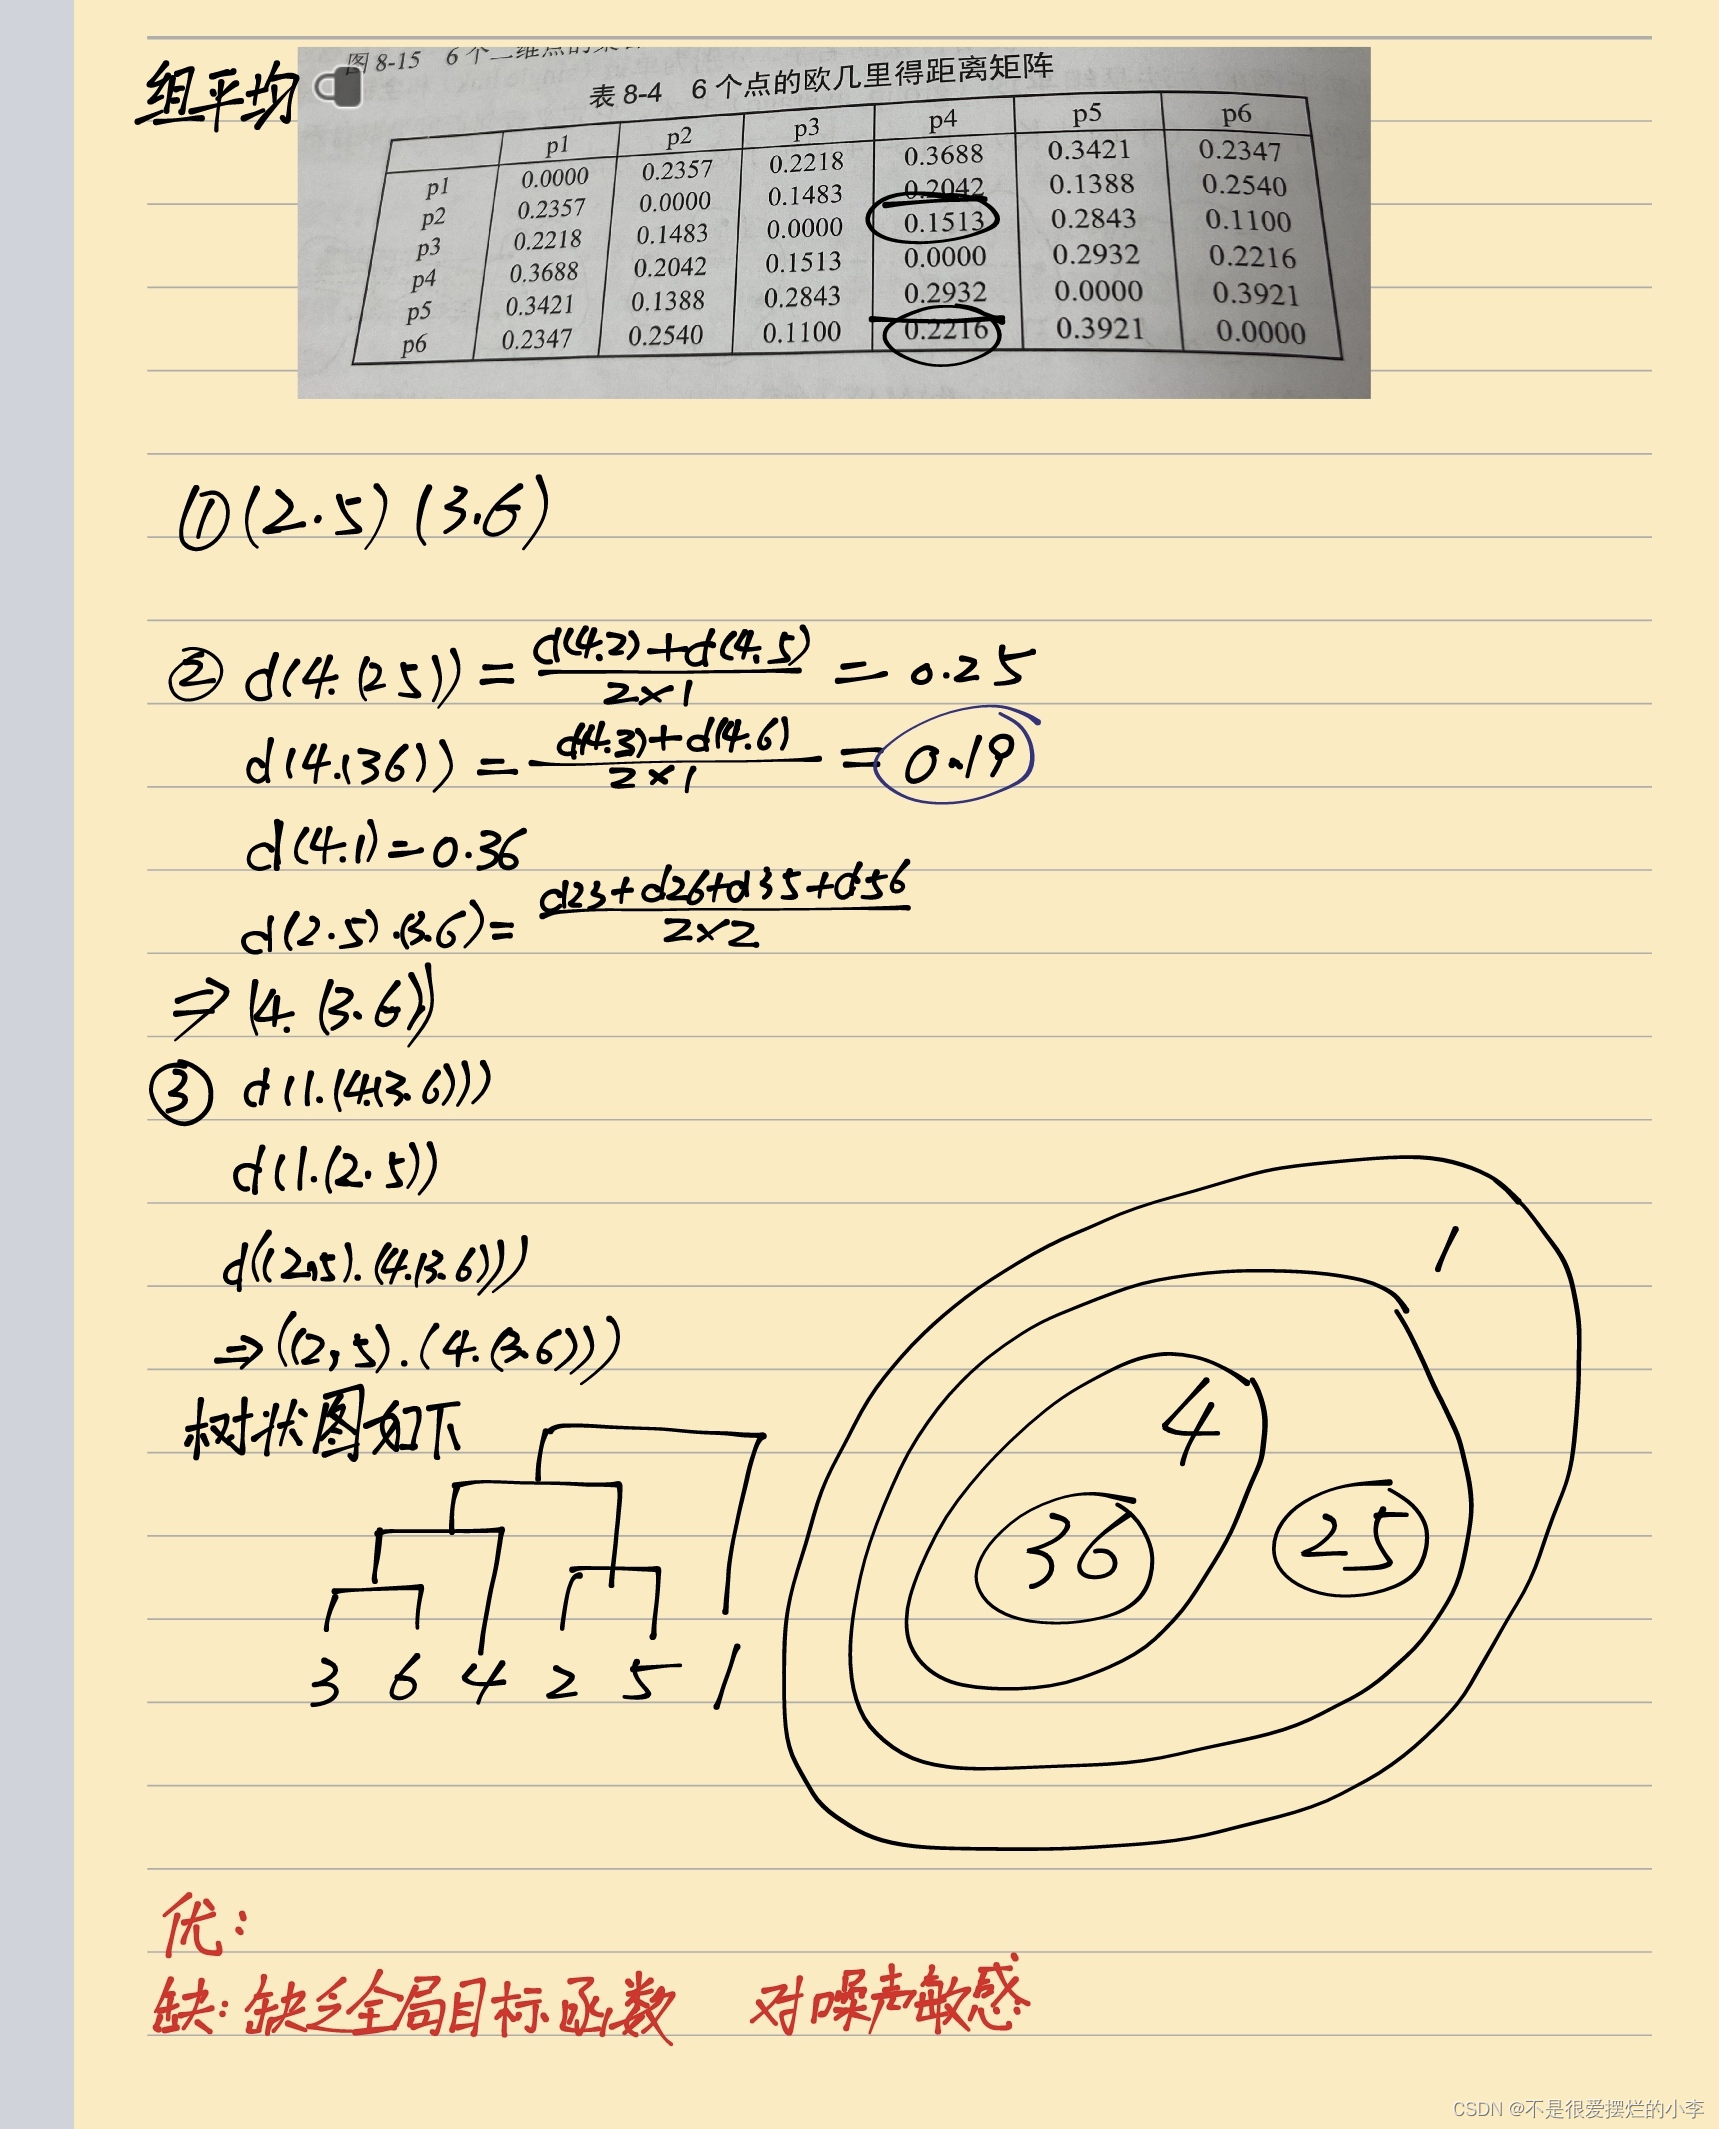 组平均
图 8-15 6 个二维点的
表 8-4 6 个点的欧几里得距离矩阵
p1 p2 p3 p4 p5 p6
p1 0.0000 0.2357 0.2218 0.3688 0.3421 0.2347
p2 0.2357 0.0000 0.1483 0.2042 0.1388 0.2540
p3 0.2218 0.1483 0.0000 0.1513 0.2843 0.1100
p4 0.3688 0.2042 0.1513 0.0000 0.2932 0.2216
p5 0.3421 0.1388 0.2843 0.2932 0.0000 0.3921
p6 0.2347 0.2540 0.1100 0.2216 0.3921 0.0000
① (2.5) (3.6)
② d(4.(25)) = d(4.2)+d(4.5) / 2×1 = 0.25
d(4.(36)) = d(4.3)+d(4.6) / 2×1 = 0.19
d(4.1) = 0.36
d(2.5).(3.6) = d23+d26+d35+d56 / 2×2
⇒ (4.(3.6))
③ d(1.(4.(3.6)))
d(1.(2.5))
d((2,5).(4.(3.6)))
⇒ ((2,5).(4.(3.6)))
树状图如下
3 6 4 2 5 1
1
4
36
25
优:
缺: 缺乏全局目标函数 对噪声敏感
CSDN @不是很爱摆烂的小李